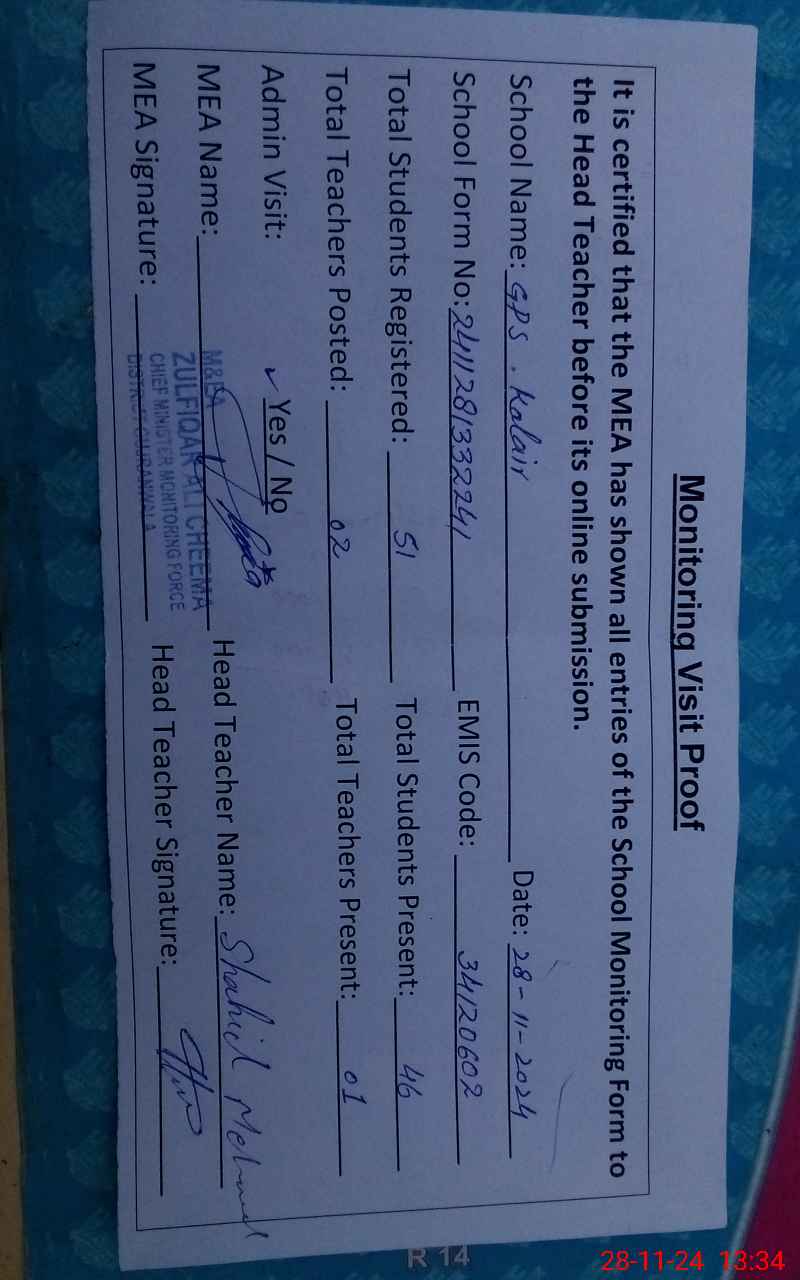 Monitoring Visit Proof
It is certified that the MEA has shown all entries of the School Monitoring Form to
the Head Teacher before its online submission.
School Name: GPS. Kalair Date: 28-11-2024
School Form No: 2411281332241 EMIS Code: 34120602
Total Students Registered: 51 Total Students Present: 46
Total Teachers Posted: 02 Total Teachers Present: 01
Admin Visit: ✓ Yes / No
MEA Name: Head Teacher Name: Shahid
M&EA
ZULFIQAR ALI CHEEMA
CHIEF MINISTER MONITORING FORCE
DISTRICT GUJRANWALA
MEA Signature: Head Teacher Signature:
R 14
28-11-24 13:34